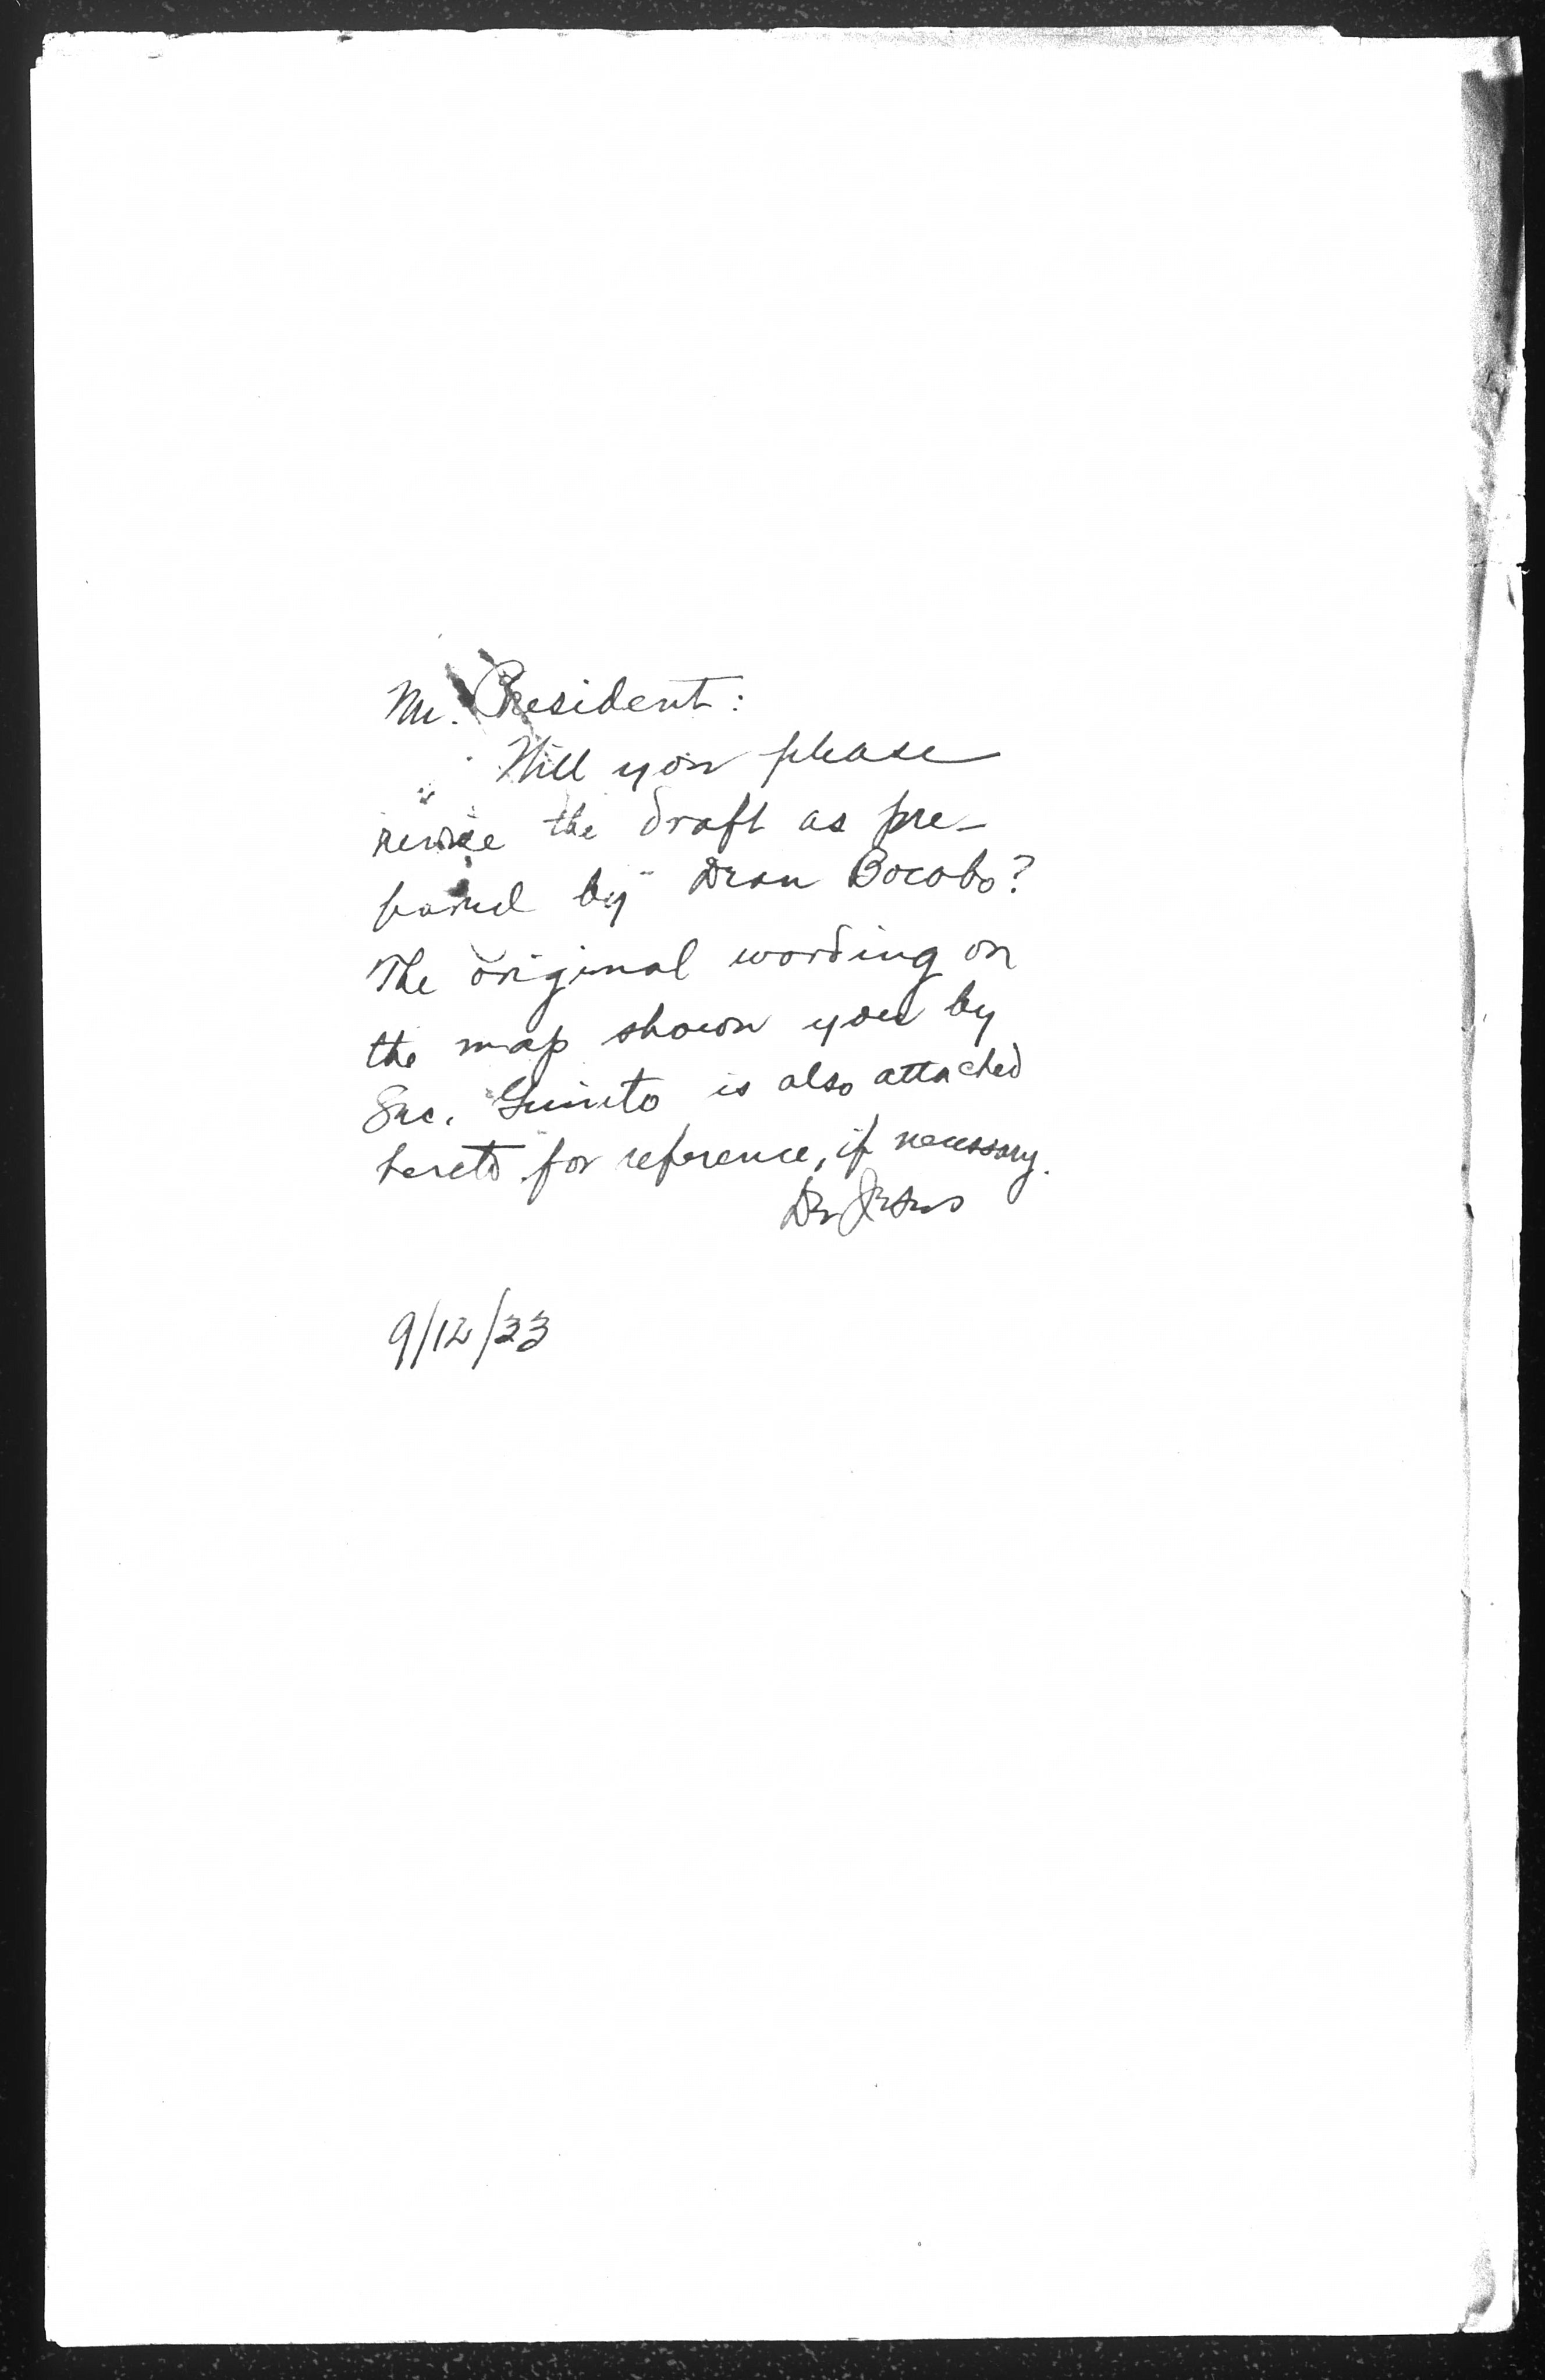 Mr. President:
Will you please
revise the draft as pre-
pared by Dean Bocobo?
The original wording on
the map shown you by
Sec. Guinto is also attached
hereto for reference, if necessary.
De Jesus
9/12/33